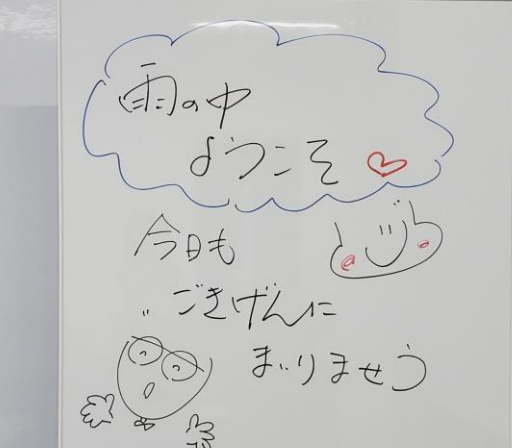 雨の中
ようこそ
今日も
ごきげんに
まいりませう